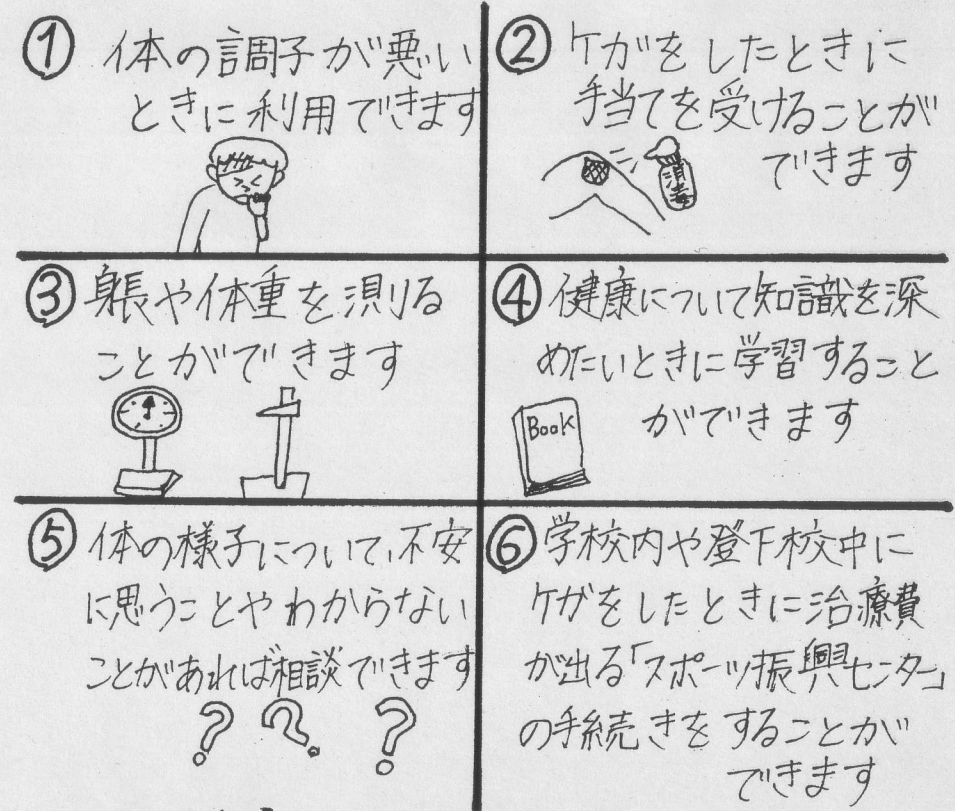 ① 体の調子が悪い
ときに利用できます
② ケガをしたときに
手当てを受けることが
できます
消毒
③ 身長や体重を測る
ことができます
④ 健康について知識を深
めたいときに学習すること
ができます
Book
⑤ 体の様子について、不安
に思うことやわからない
ことがあれば相談できます
? ? ?
⑥ 学校内や登下校中に
ケガをしたときに治療費
が出る「スポーツ振興センター」
の手続きをすることが
できます